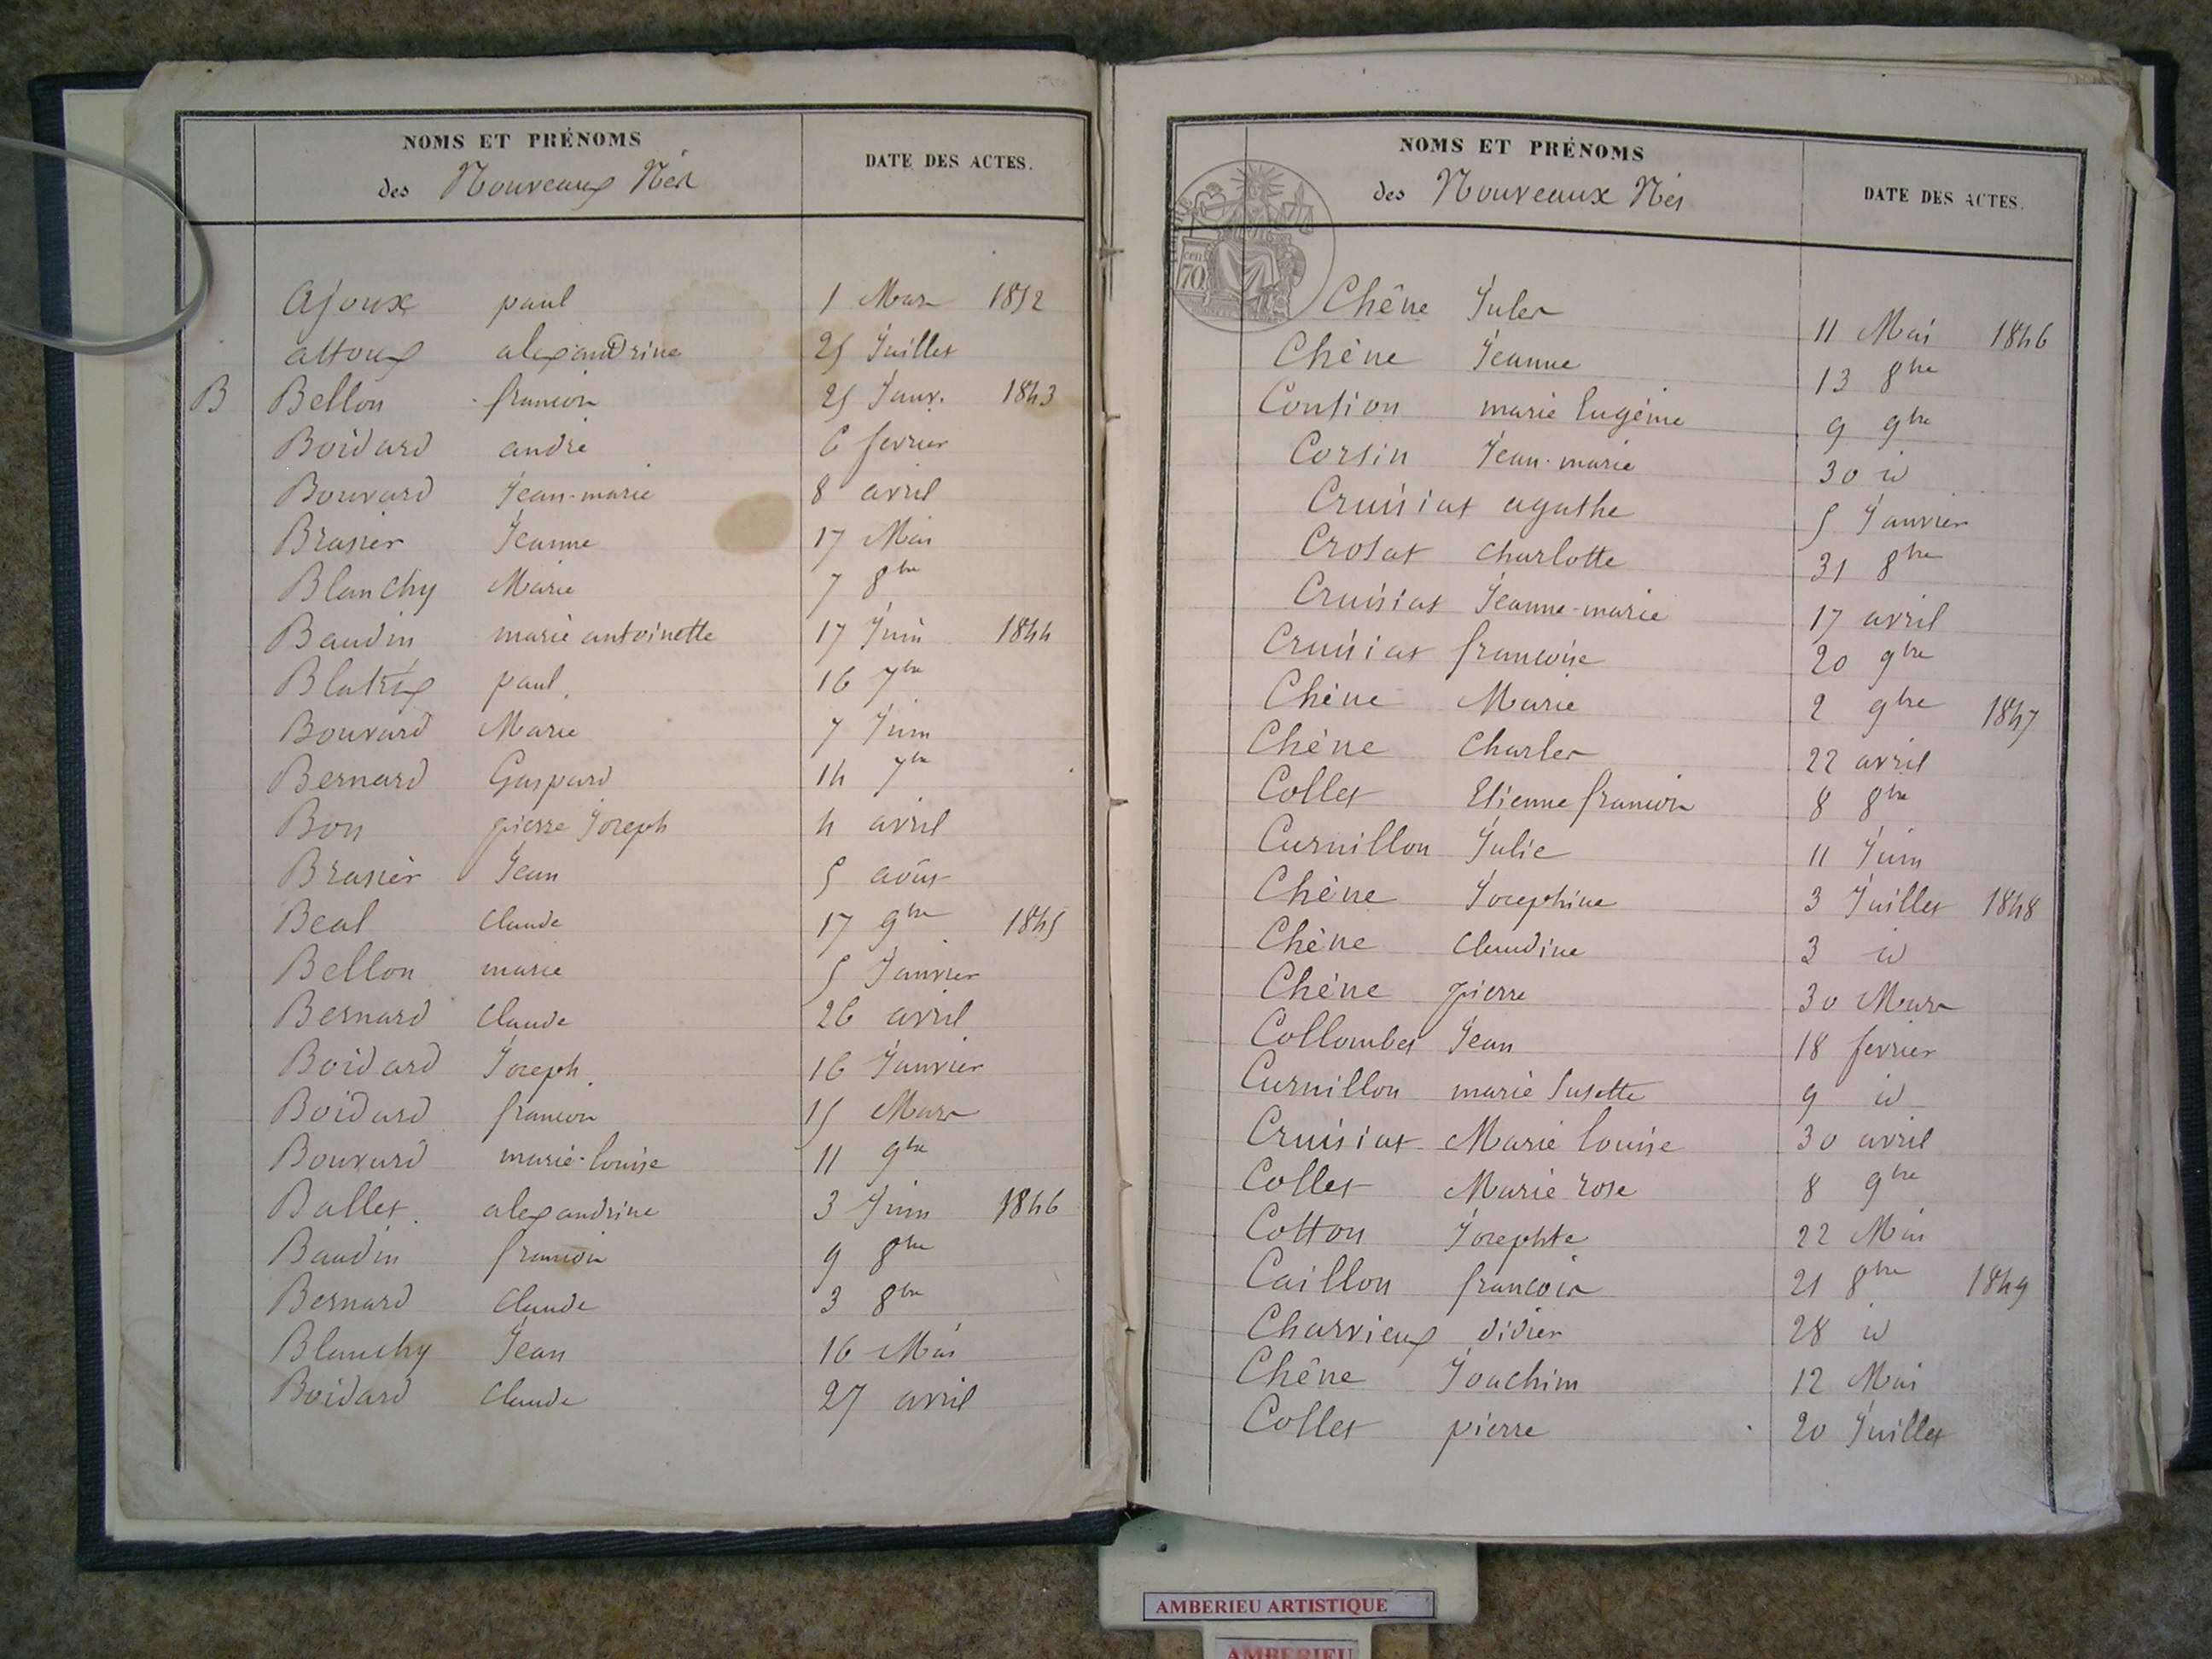 NOMS ET PRÉNOMS
des Nouveaux Nés
DATE DES ACTES.
Ajoux paul 1 Mars 1852
attoux alexandrine 25 Juillet
B Bellon francois 25 Janv. 1843
Boidard andré 6 fevrier
Bouvard Jean-marie 8 avril
Brasier Jeanne 17 Mai
Blanchy Marie 7 8bre
Baudin marie antoinette 17 Juin 1844
paul 16 7bre
Bouvard Marie 7 Juin
Bernard Gaspard 14 7bre
Bon pierre Joseph 4 avril
Brasier Jean 5 août
Beal Claude 17 9bre 1845
Bellon marie 5 Janvier
Bernard Claude 26 avril
Boidard Joseph 16 Janvier
Boidard francois 15 Mars
Bouvard marie-louise 11 9bre
Ballet alexandrine 3 Juin 1846
Baudin francois 9 8bre
Bernard Claude 3 8bre
Blanchy Jean 16 Mai
Boidard Claude 27 avril
NOMS ET PRÉNOMS
des Nouveaux Nés
DATE DES ACTES.
70
Chêne Jules 11 Mai 1846
Chêne Jeanne 13 8bre
marie Eugénie 9 9bre
Corsin Jean-marie 30 id
Cruisiat agathe 5 Janvier
Crosat Charlotte 31 8bre
Cruisiat Jeanne-marie 17 avril
Cruisiat francoise 20 9bre
Chêne Marie 2 9bre 1847
Chêne Charles 22 avril
Collet Etienne francois 8 8bre
Curnillon Julie 11 Juin
Chêne Josephine 3 Juillet 1848
Chêne Claudine 3 id
Chêne pierre 30 Mars
Collombet Jean 18 fevrier
Curnillon marie Susette 9 id
Cruisiat Marie louise 30 avril
Collet Marie rose 8 9bre
Cotton Josephte 22 Mai
Caillon francois 21 8bre 1849
Charvieux didier 28 id
Chêne Joachim 12 Mai
Collet pierre 20 Juillet
AMBERIEU ARTISTIQUE
AMBERIEU